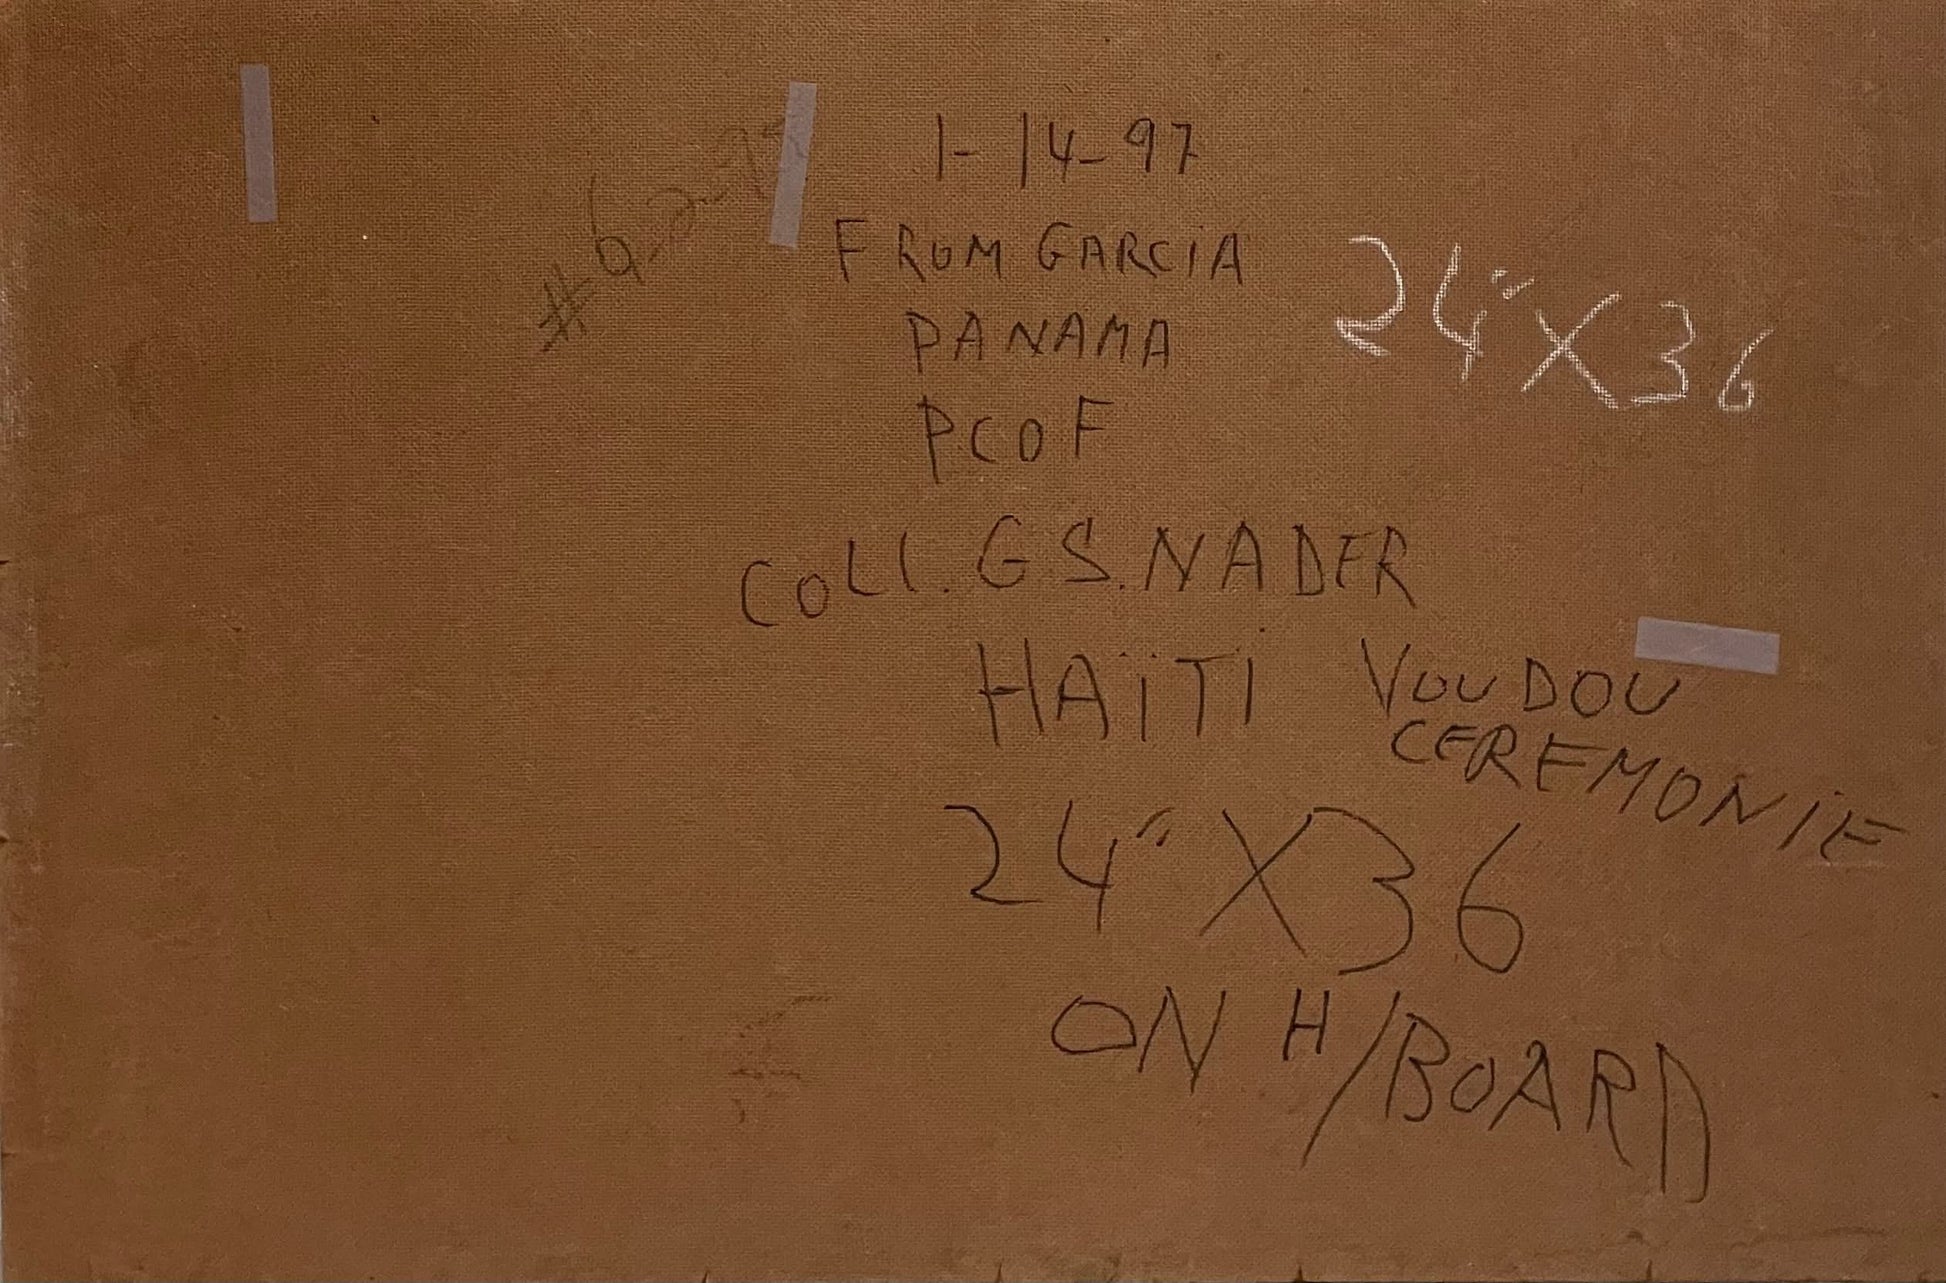 1-14-97
FROM GARCiA
PANAMA
PCOF
24" X 36
COLL. G.S. NADER
HAÏTI VOUDOU
CEREMONIE
24" X 36
ON H/BOARD